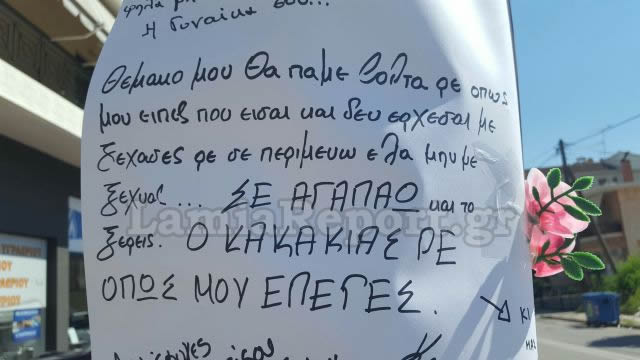 Η Γυναίκα σου...
Θεμακο μου θα παμε βολτα ρε οπως
μου ειπες που εισαι και δεν ερχεσαι με
ξεχασες ρε σε περιμενω ελα μην με
ξεχνας... ΣΕ ΑΓΑΠΑΩ και το
ξερεις. Ο ΚΑΚΑΚΙΑΣ ΡΕ
ΟΠΩΣ ΜΟΥ ΕΛΕΓΕΣ.
ΚΙ
LamiaReport.gr